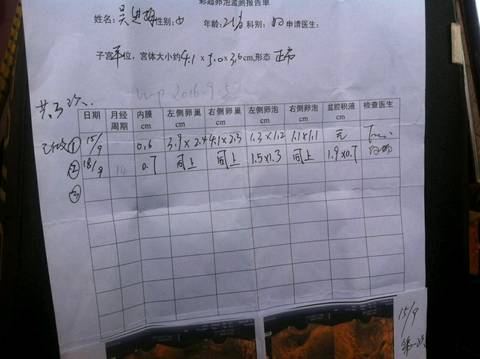 彩超卵泡监测报告单
姓名: 性别: 女 年龄: 科别: 妇 申请医生:
子宫 位, 宫体大小约4.1×3.0×3.6cm, 形态 正常
LMP 2016.9.5
共三次.
日期 月经周期 内膜cm 左侧卵巢cm 右侧卵巢cm 左侧卵泡cm 右侧卵泡cm 盆腔积液cm 检查医生
① 15/9 0.6 3.9×2.4 4.1×2.3 1.3×1.2 1.1×1.1 无
② 18/9 14 0.7 同上 同上 1.5×1.3 同上 1.9×0.7
③
15/9
第一次